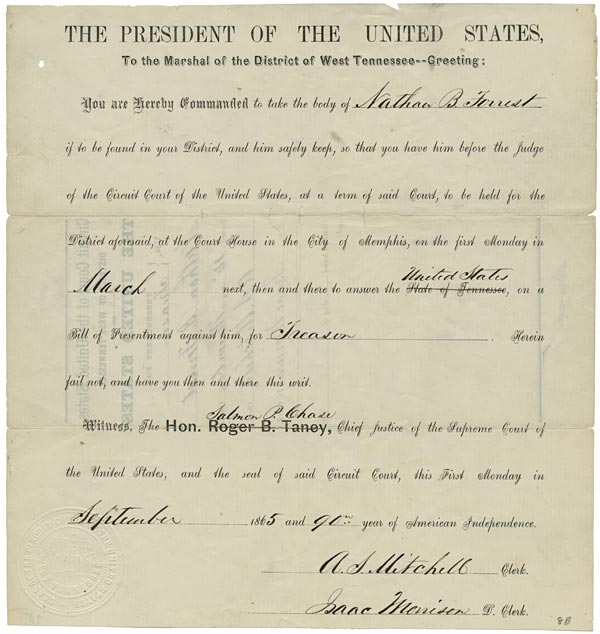 THE PRESIDENT OF THE UNITED STATES,
To the Marshal of the District of West Tennessee--Greeting:
You are Hereby Commanded to take the body of Nathan B. Forrest
if to be found in your District, and him safely keep, so that you have him before the Judge
of the Circuit Court of the United States, at a term of said Court, to be held for the
District aforesaid, at the Court House in the City of Memphis, on the first Monday in
United States
March next, then and there to answer the State of Tennessee, on a
Bill of Presentment against him, for Treason . Herein
fail not, and have you then and there this writ.
Salmon P. Chase
Witness, The Hon. Roger B. Taney, Chief Justice of the Supreme Court of
the United States, and the seal of said Circuit Court, this First Monday in
September 1865 and 90th year of American Independence.
A. S. Mitchell Clerk.
Isaac Morrison D. Clerk.